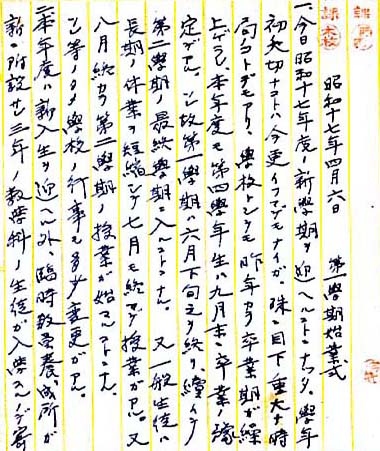 昭和十七年四月六日 第一學期始業式
一、今日昭和十七年度ノ新學期ヲ迎ヘルコトニナッタ。學年
初大切ナコトハ今更イフマデモナイガ、殊ニ目下重大ナ時
局コトデモアリ、學校トシテモ昨年カラ卒業期ガ繰
上ゲラレ、本年度モ第四學年生ハ九月末ニ卒業ノ豫
定デアル。之故第一學期ハ六月下旬之ヲ終リ、續イテ
第二學期ノ最終學期ニ入ルコトニナル。又一般生徒ハ
長期ノ休業ヲ短縮シテ七月モ終マデ授業ガアル。又
八月終カラ第二學期ノ授業ガ始マルコトニナル。
之等ノタメ學校ノ行事モ多少變更ガアル。
二、本年度ハ新入生ヲ迎ヘル外、臨時教員養成所ガ
新ニ附設サレ三年ノ教學科ノ生徒ガ入學スルノデ寄